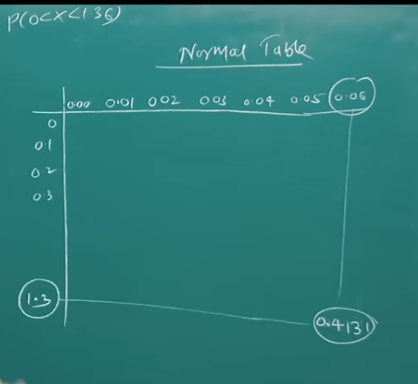 P(0<X<1.36)
Normal Table
0.00 0.01 0.02 0.03 0.04 0.05 0.06
0
0.1
0.2
0.3
1.3
0.4131